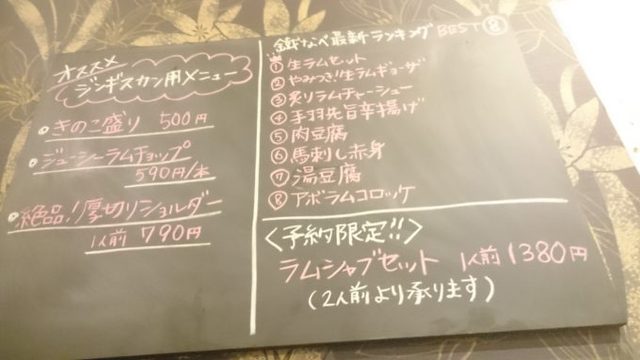 オススメ
ジンギスカン用メニュー
きのこ盛り 500円
ジューシーラムチョップ
590円/本
絶品!厚切りショルダー
1人前 790円
鉄なべ最新ランキング BEST⑧
①生ラムセット
②やみつき!生ラムギョーザ
③炙りラムチャーシュー
④手羽先旨辛揚げ
⑤肉豆腐
⑥馬刺し赤身
⑦湯豆腐
⑧アボラムコロッケ
<予約限定!!>
ラムシャブセット 1人前 1380円
(2人前より承ります)